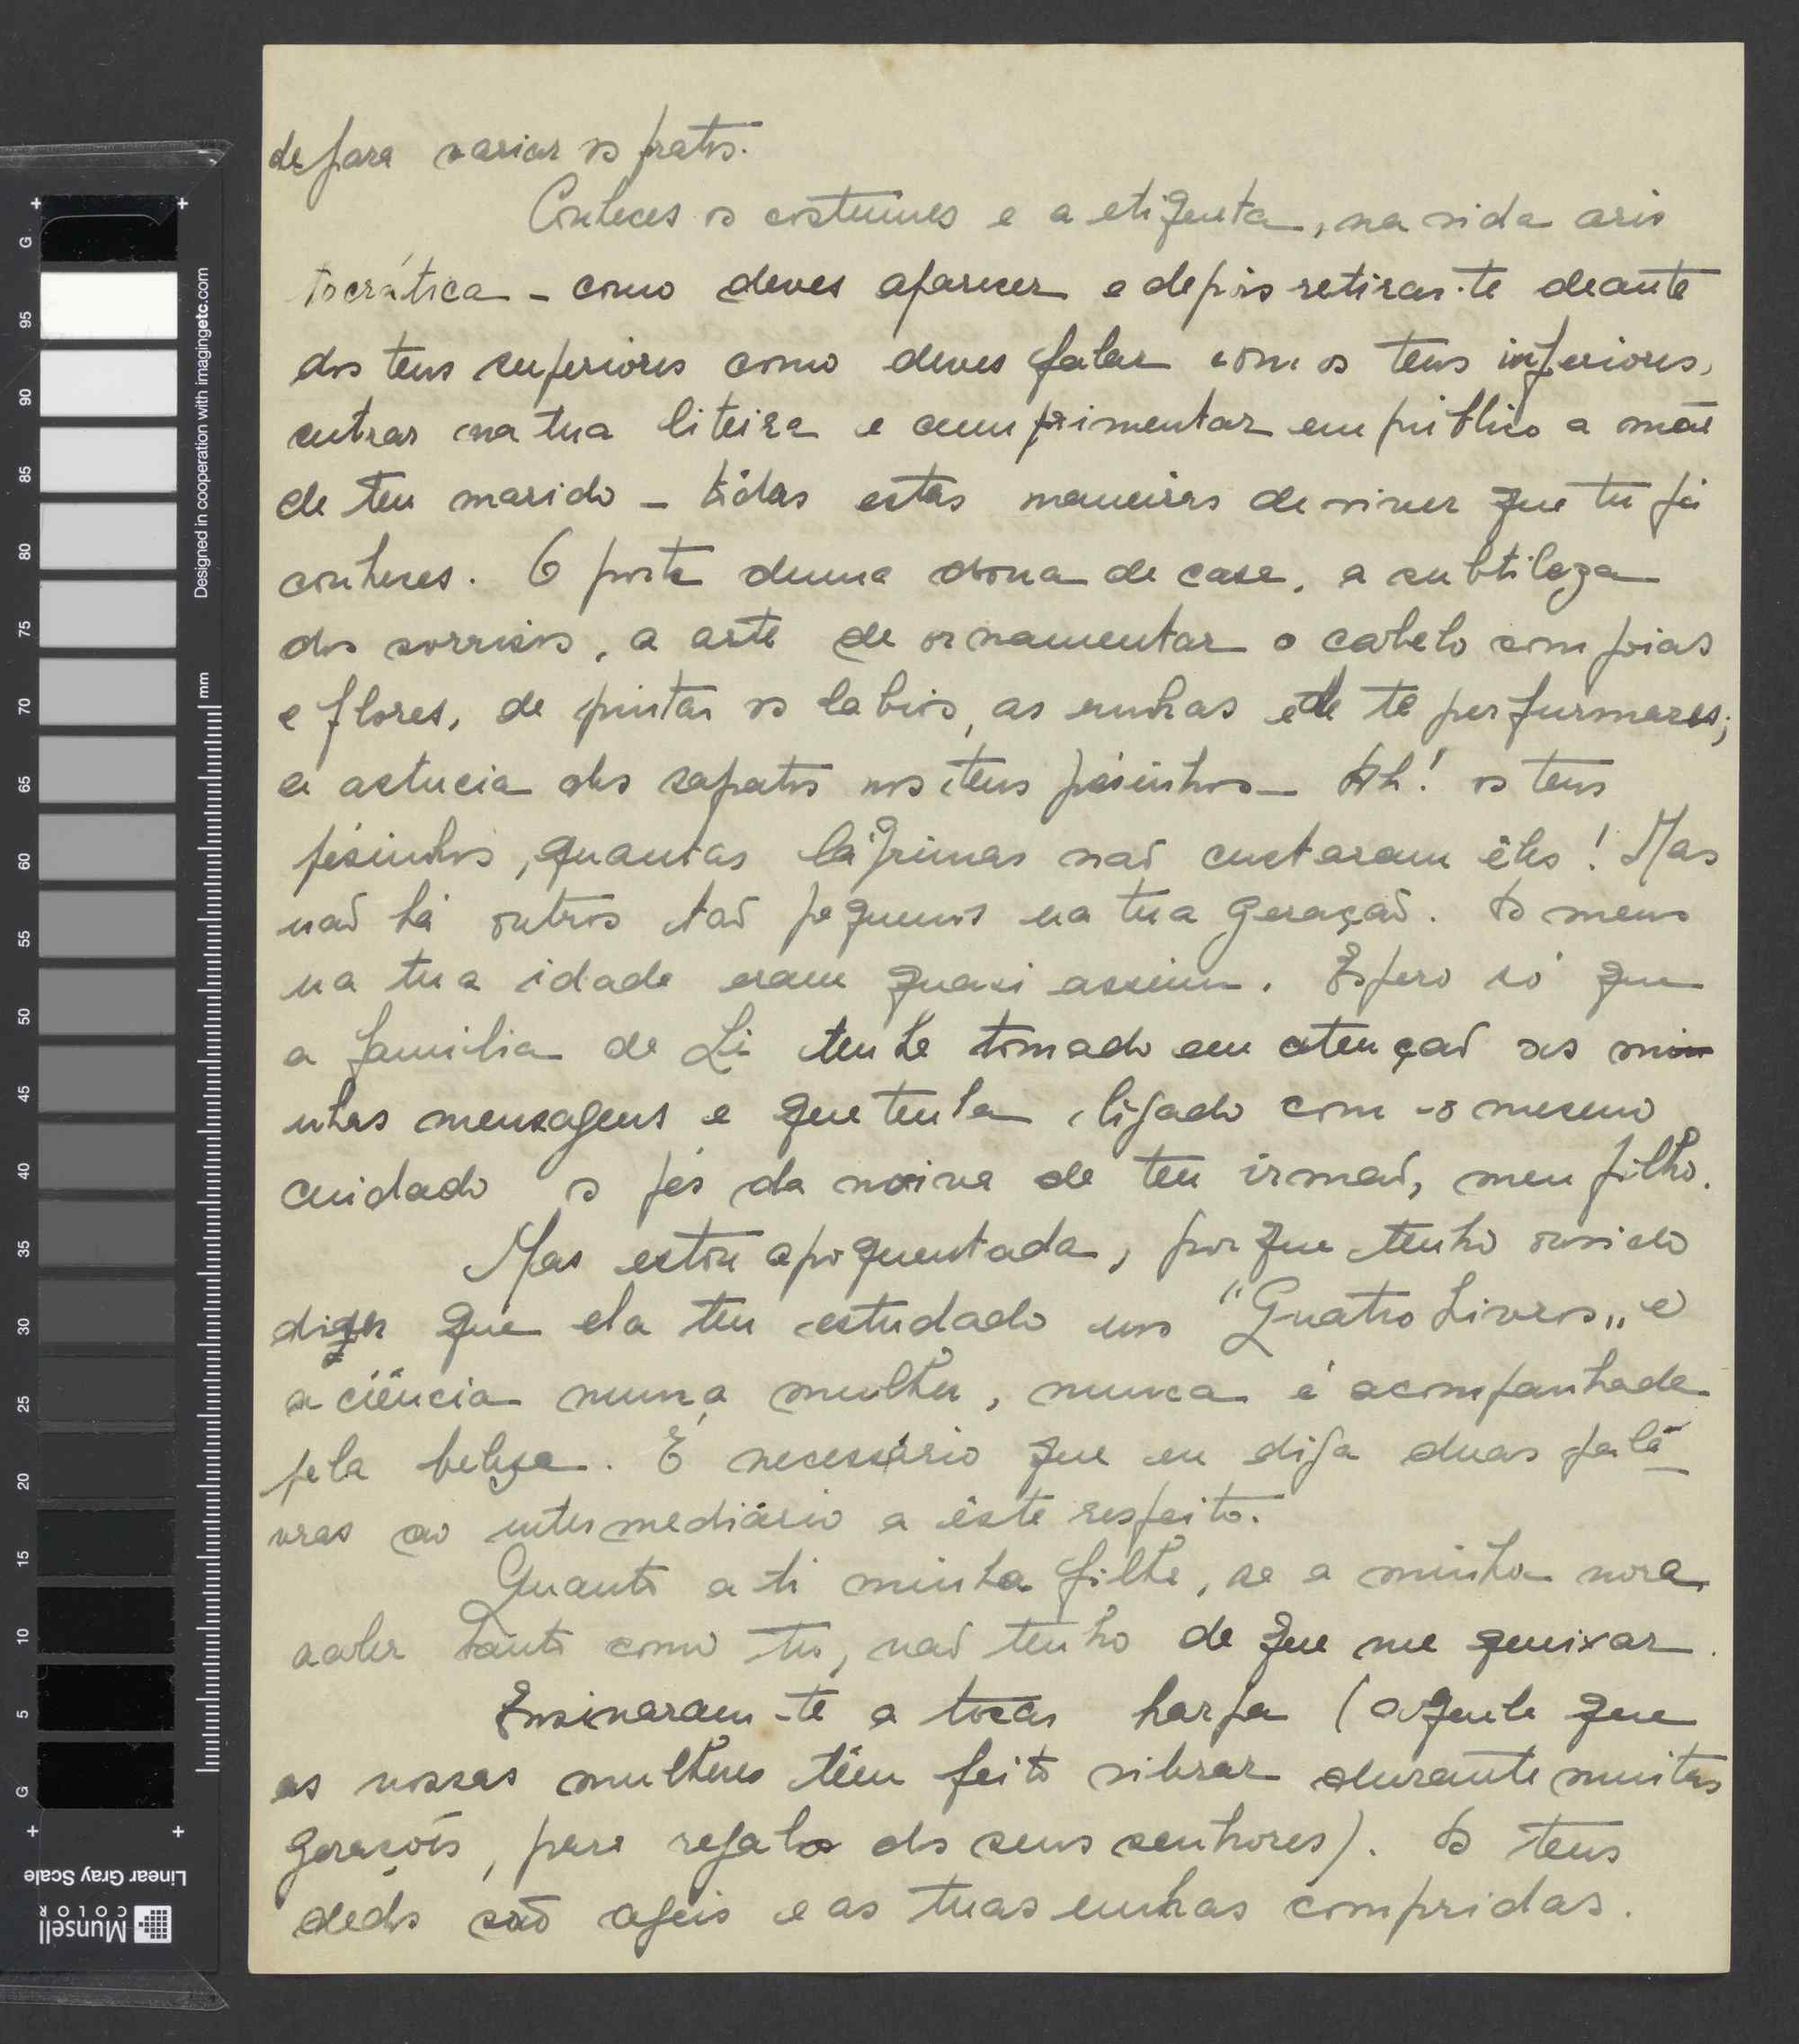 de para variar os pratos.
Conheces os costumes e a etiqueta, na vida aris
tocrática - como deves aparecer e depois retirar-te deante
dos teus superiores como deves falar com os teus inferiores,
entrar na tua liteira e cumprimentar em público a mãe
de teu marido - tôdas estas maneiras de viver que tu já
conheces. O porte duma dona de casa, a subtileza
dos sorrisos, a arte de ornamentar o cabelo com joias
e flores, de pintar os labios, as unhas e de te perfumares;
a astucia dos sapatos nos teus pésinhos - Ah! os teus
pésinhos, quantas lágrimas não custaram êles! Mas
não há outros tão pequenos na tua geração. Os meus
na tua idade eram quasi assim. Espero só que
a familia de Li tenha tomado em atenção as mi
nhas mensagens e que tenha ligado com o mesmo
cuidado os pés da noiva de teu irmão, meu filho.
Mas estou apoquentada, porque tenho ouvido
dizer que ela tem estudado nos "Quatro Livros" e
a ciência numa mulher, nunca é acompanhada
pela beleza. É necessário que eu diga duas palá
vras ao intermediário a êste respeito.
Quanto a ti minha filha, se a minha nora
saber tanto como tu, não tenho de que me queixar.
Ensinaram-te a tocar harpa (aquela que
as nossas mulheres têem feito vibrar durante muitas
gerações, para regalo dos seus senhores). Os teus
dedos são ageis e as tuas unhas compridas.
Designed in cooperation with imagingetc.com
mm
G 95 90 85 80 75 70 65 60 55 50 45 40 35 30 25 20 15 10 5 G
Linear Gray Scale
Munsell
COLOR